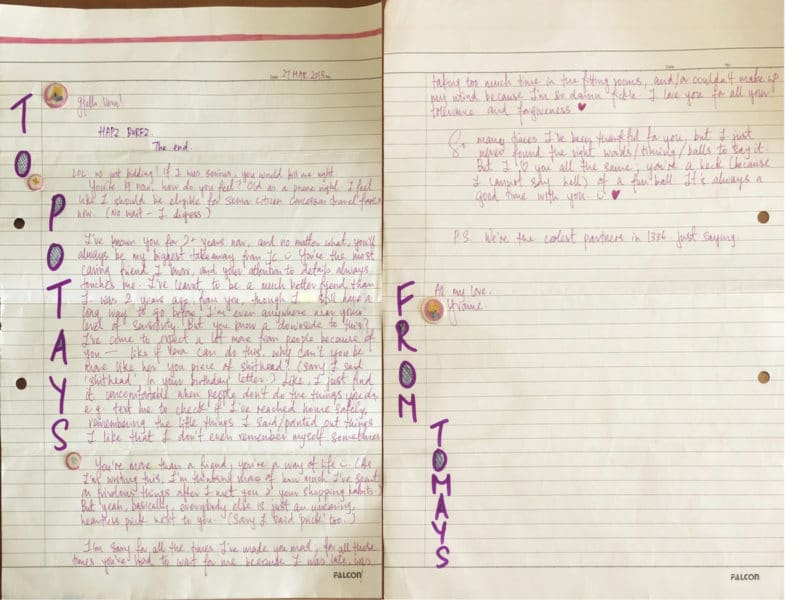 27 MAR 2015
Hello Vera!
HAPZ BURFZ.
The end.
LOL no just kidding! If I was serious, you would kill me right.
You're 19 now, how do you feel? Old as a prune right. I feel
like I should be eligible for senior citizen concession travel fares
now. (No wait - I digress)
I've known you for 2+ years now, and no matter what, you'll
always be my biggest takeaway from JC :) You're the most
caring friend I know, and your attention to details always
touches me. I've learnt to be a much better friend than
I was 2 years ago, from you, though I still have a
long way to go before I'm even anywhere near your
level of sensitivity. But you know a downside to this?
I've come to expect a lot more from people because of
you — like if Vera can do this, why can't you be
more like her you piece of shithead? (Sorry I said
'shithead' in your birthday letter.) Like, I just find
it uncomfortable when people don't do the things you do,
e.g. text me to check if I've reached house safely,
remembering the little things I said/pointed out things
I like that I don't even remember myself sometimes.
You're more than a friend, you're a way of life :) (As
I'm writing this, I'm thinking more of how much I've spent
on frivolous things after I met you & your shopping habits.)
But yeah, basically, everybody else is just an uncaring,
heartless prick next to you. (Sorry I said 'prick' too.)
I'm sorry for all the times I've made you mad, for all those
times you've had to wait for me because I was late, was
TO POTAYS
FALCON
taking too much time in the fitting rooms, and/or couldn't make up
my mind because I'm so damn fickle. I love you for all your
tolerance and forgiveness ♥
So many times I've been thankful for you, but I just
never found the right words/timing/balls to say it.
But I ♡ you all the same, you're a heck (because
I cannot say hell) of a fun ball. It's always a
good time with you :) ♥
P.S. We're the coolest partners in 1336. Just saying.
All my love,
Yvonne.
FROM TOMAYS
FALCON